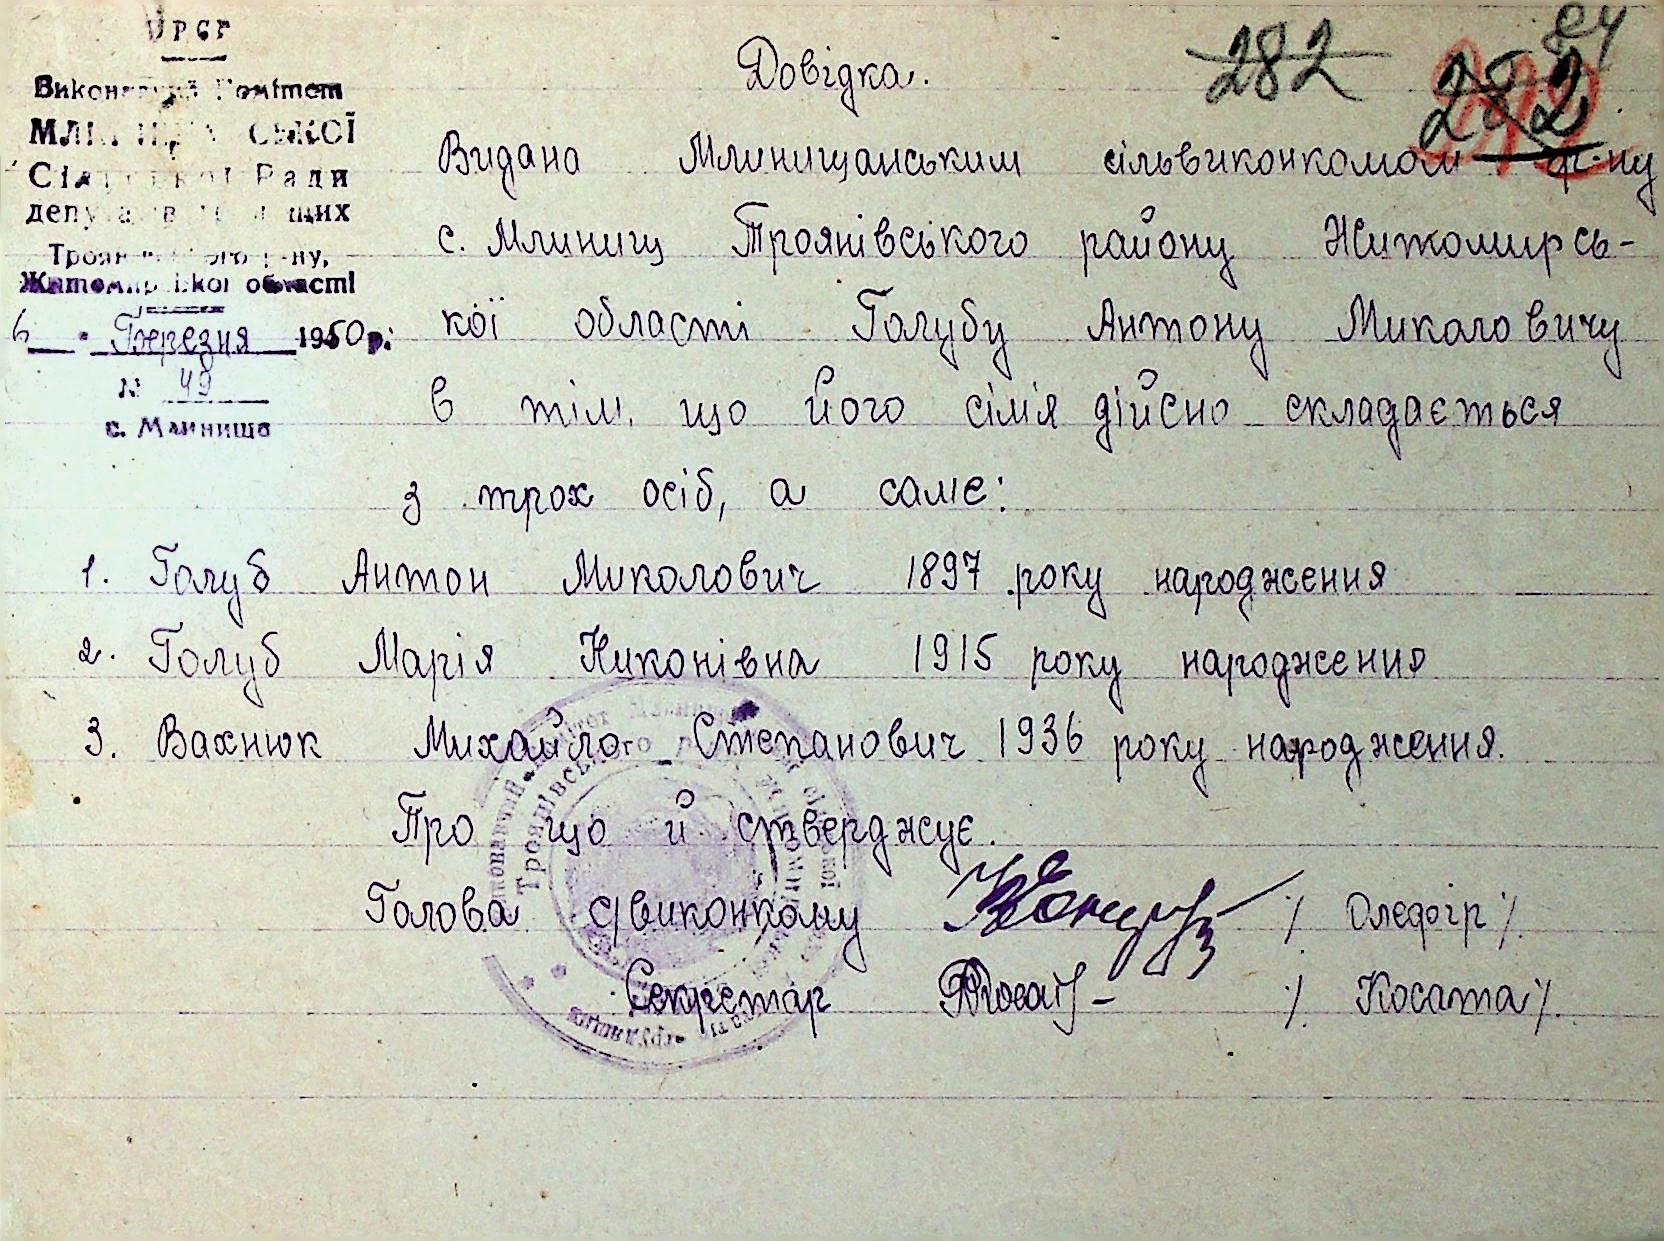 УРСР
Виконавчий Комітет
МЛИНИЩАНСЬКОЇ
Сільської Ради
депутатів трудящих
Троянівського р-ну,
Житомирської області
6 Березня 1950 р.
№ 49
с. Млинище
282
282
84
Довідка.
Видана Млинищанським сільвиконкомом гр-ну
с. Млинищ Троянівського району Житомирсь-
кої області Голубу Антону Миколовичу
в тім, що його сімя дійсно складається
з трох осіб, а саме:
1. Голуб Антон Миколович 1897 року народження
2. Голуб Марія Никонівна 1915 року народження
3. Вахнюк Михайло Степанович 1936 року народження.
Про що й стверджує.
Голова с/виконкому /. Олефір /.
Секретар /. Косата /.